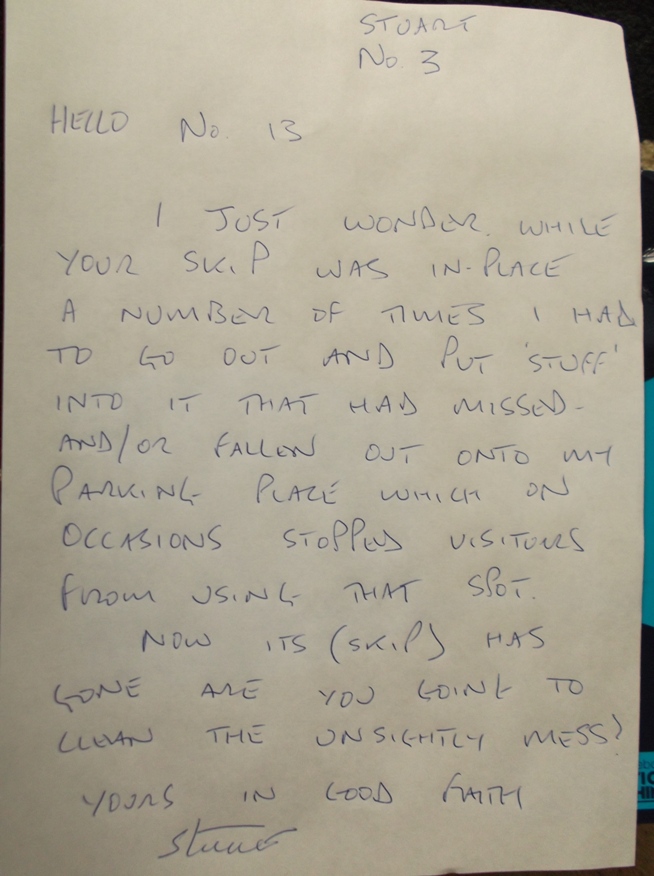 STUART
No. 3
HELLO No. 13
I JUST WONDER. WHILE
YOUR SKIP WAS IN-PLACE
A NUMBER OF TIMES I HAD
TO GO OUT AND PUT 'STUFF'
INTO IT THAT HAD MISSED-
AND/OR FALLEN OUT ONTO MY
PARKING PLACE WHICH ON
OCCASIONS STOPPED VISITOURS
FROM USING THAT SPOT.
NOW ITS (SKIP) HAS
GONE ARE YOU GOING TO
CLEAN THE UNSIGHTLY MESS?
YOURS IN GOOD FAITH
Stuart